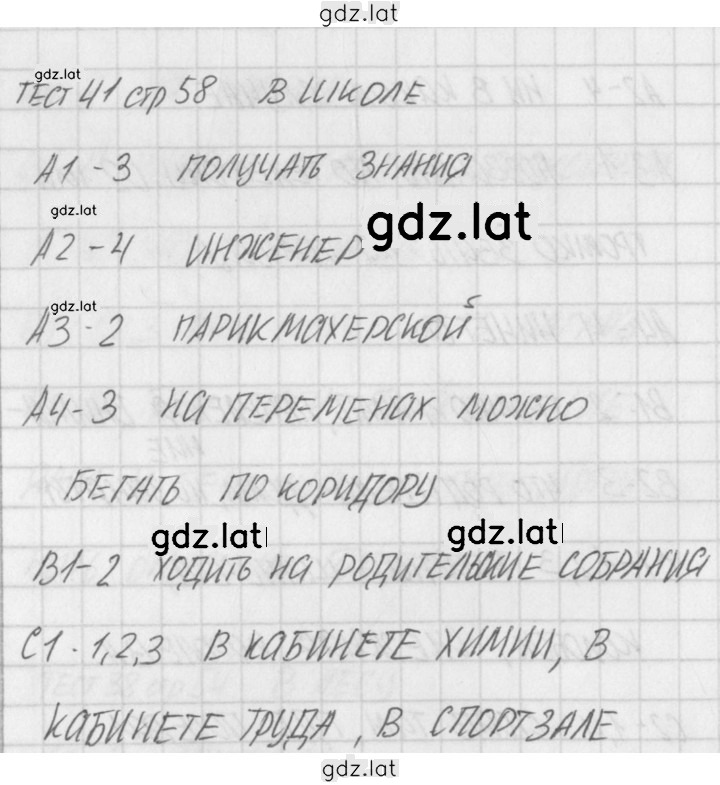 gdz.lat
gdz.lat
ТЕСТ 41 стр 58 В ШКОЛЕ
А1 - 3 ПОЛУЧАТЬ ЗНАНИЯ
gdz.lat
gdz.lat
А2 - 4 ИНЖЕНЕР
gdz.lat
А3 - 2 ПАРИКМАХЕРСКОЙ
А4 - 3 НА ПЕРЕМЕНАХ МОЖНО
БЕГАТЬ ПО КОРИДОРУ
gdz.lat gdz.lat
В1 - 2 ХОДИТЬ НА РОДИТЕЛЬСКИЕ СОБРАНИЯ
С1 - 1,2,3 В КАБИНЕТЕ ХИМИИ, В
КАБИНЕТЕ ТРУДА, В СПОРТЗАЛЕ
gdz.lat